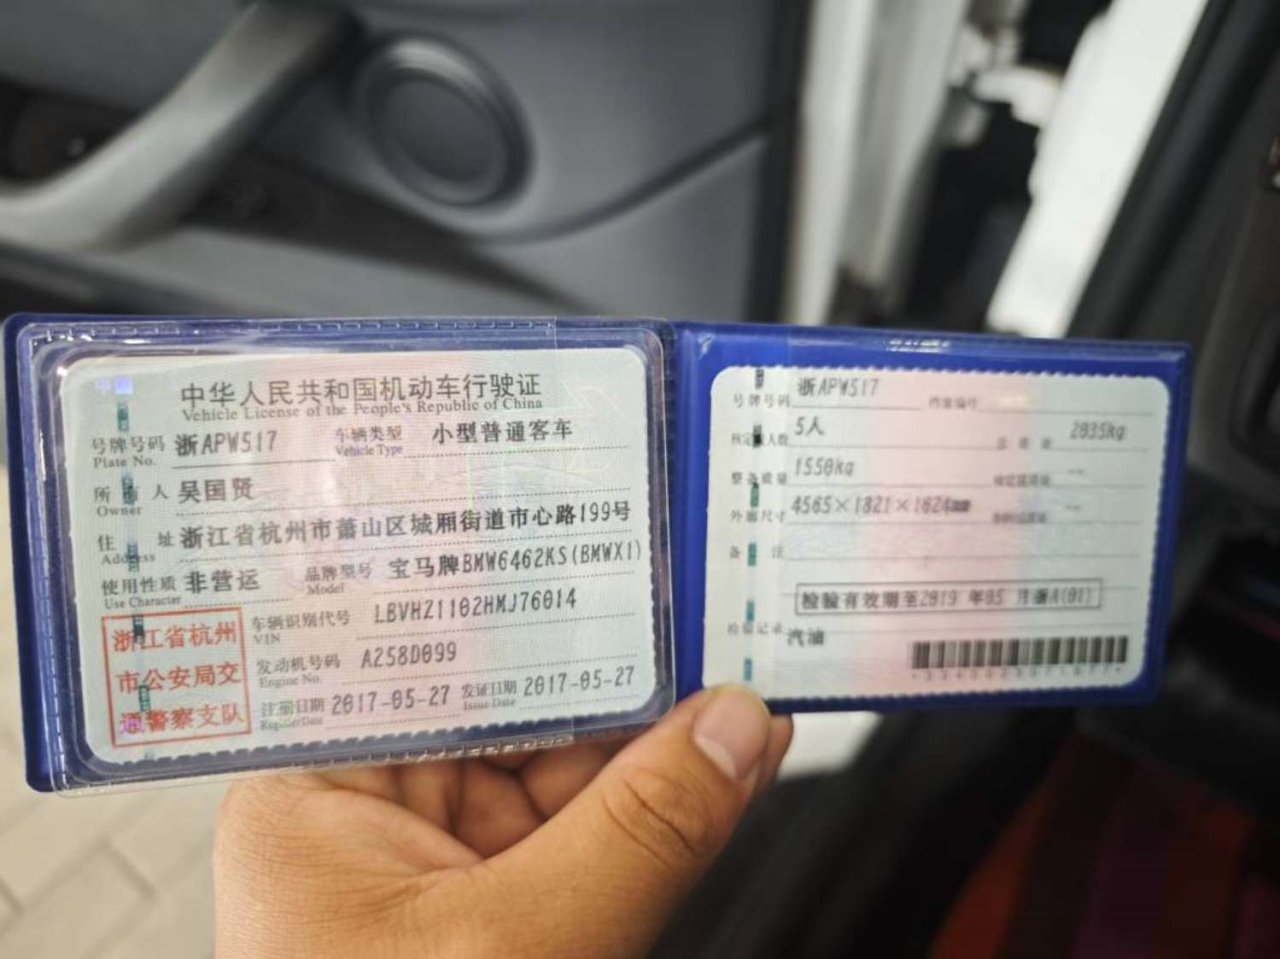 中华人民共和国机动车行驶证
Vehicle License of the People's Republic of China
号牌号码 浙APW517 车辆类型 小型普通客车
Plate No. Vehicle Type
所有人 吴国贤
Owner
住址 浙江省杭州市萧山区城厢街道市心路199号
Address
使用性质 非营运 品牌型号 宝马牌BMW6462KS(BMWX1)
Use Character Model
浙江省杭州
市公安局交
通警察支队
车辆识别代号 LBVHZ1102HMJ76014
VIN
发动机号码 A258D099
Engine No.
注册日期 2017-05-27 发证日期 2017-05-27
Register Date Issue Date
号牌号码 浙APW517 档案编号
核定载人数 5人 总质量 2035kg
整备质量 1550kg
外廓尺寸 4565×1821×1624mm
备注
检验有效期至2019年05月浙A(01)
检验记录 汽油